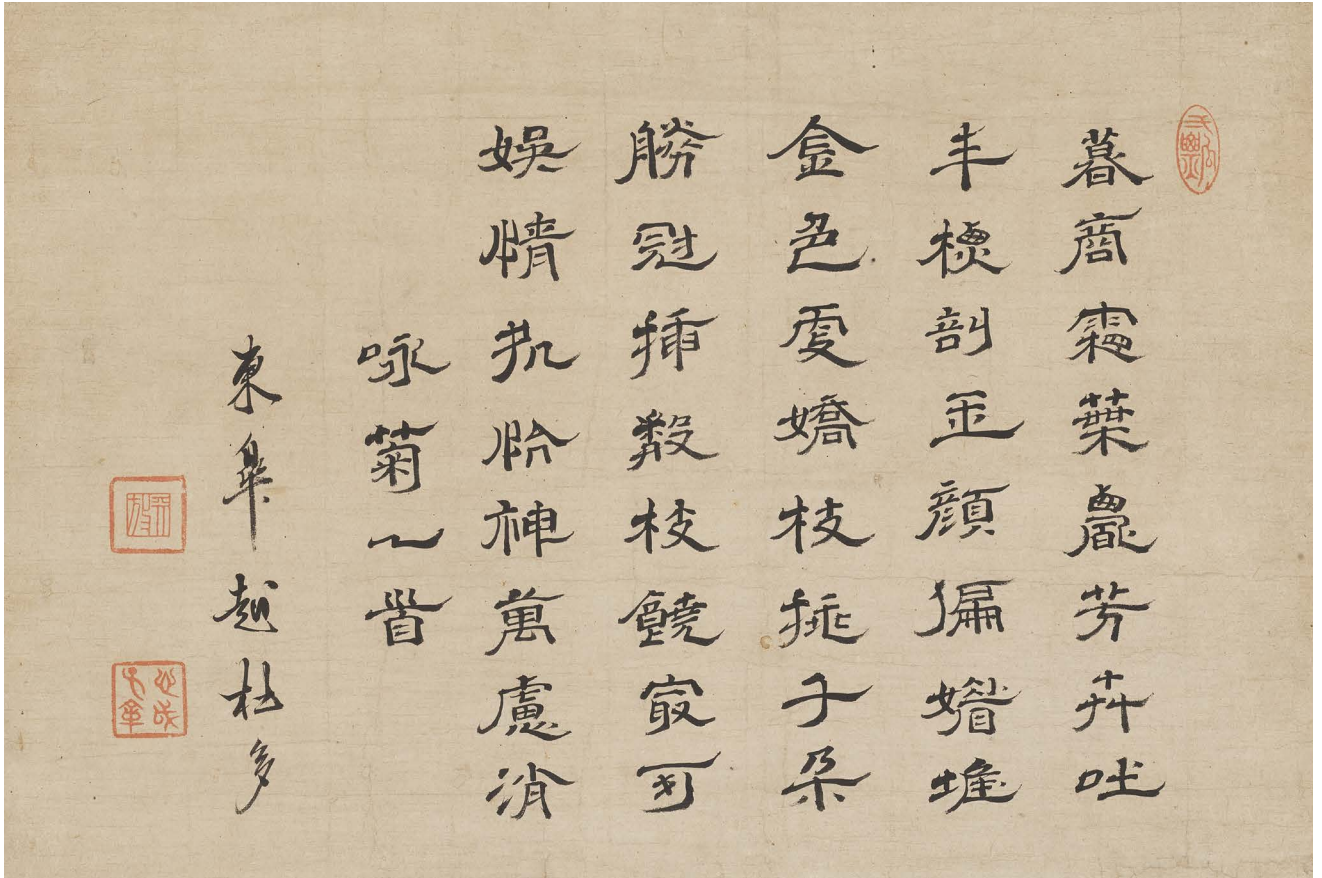 暮商葉農芳卉吐
丰標剖玉顔偏媚堆
金色更嬌枝挑千朵
勝冠插數枝饒最可
娛情怡神萬慮消
咏菊一首
東皐越杜多